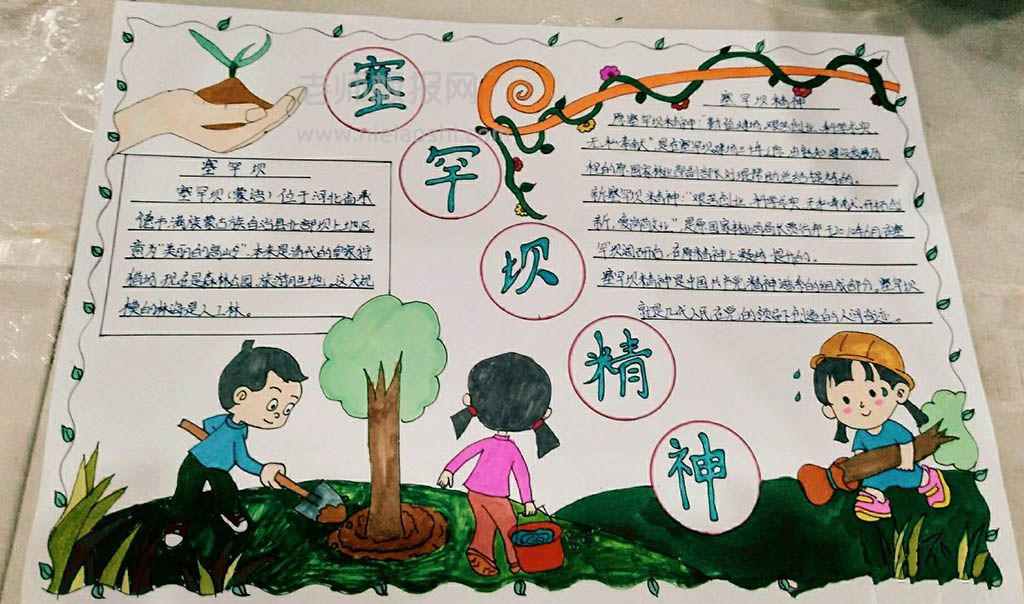 塞
罕
坝
精
神
老师 报网
塞罕坝
塞罕坝(蒙语)位于河北省承
德市满族蒙古族自治县北部坝上地区
意为"美丽的高岭"。本来是清代的皇家狩
猎场,现在是森林公园,旅游胜地。这大规
模的林海是人工林。
塞罕坝精神
原塞罕坝精神:"勤俭建场、艰苦创业、科学求实、
无私奉献"是在塞罕坝建场三十年之际,
程的原国家林业部副部长刘琨帮助总结提炼的。
新塞罕坝精神:"艰苦创业、科学求实、无私奉献、开拓创
新、爱岗敬业",是原国家林业局局长贾治邦于2010年6月在塞
罕坝调研后,在原精神上凝练、提出的。
塞罕坝精神是中国共产党精神谱系的组成部分。塞罕坝
就是几代人民在党的领导下创造的人间奇迹。